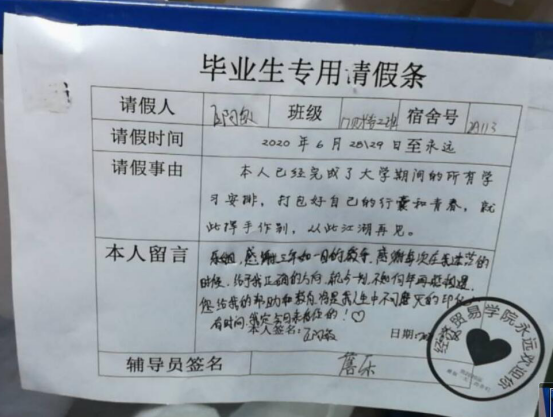 毕业生专用请假条
请假人 王闪敏 班级 17财管2班 宿舍号 2A113
请假时间 2020年6月28\29日至永远
请假事由 本人已经完成了大学期间的所有学
习安排，打包好自己的行囊和青春，就
此挥手作别，从此江湖再见。
本人留言 感谢三年如一日的教导，感谢每次在我迷茫的
时候，给予我正确的方向
您给我的帮助和教导将是我人生中不可磨灭的印记
有时间一定会回来看您的！♡
本人签名：王闪敏 日期：
辅导员签名
经济贸易学院永远欢迎你